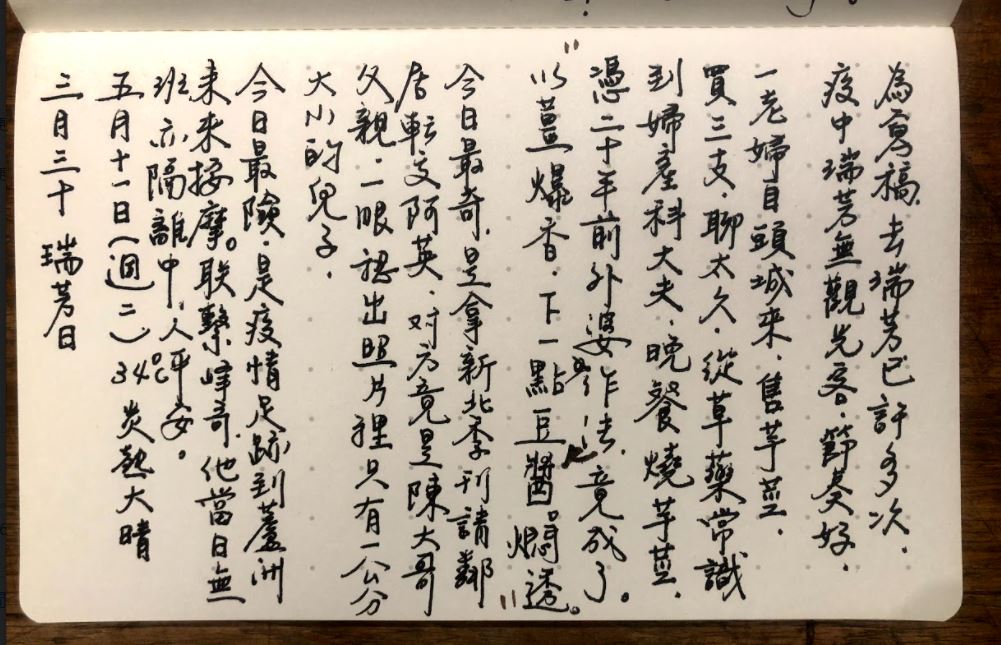 為寫稿,去瑞芳已許多次.
疫中瑞芳無觀光客.節奏好.
一老婦自頭城來.售芋莖.
買三支.聊太久.從草藥常識
到婦產科大夫.晚餐燒芋莖.
憑二十年前外婆作法.竟成了。
以薑爆香.下一點豆醬。燜透。
今日最奇.是拿新北季刊請鄰
居轉交阿英.对方竟是陳大哥
父親.一眼認出照片裡只有一公分
大小的兒子.
今日最險.是疫情足跡到蘆洲
未來按摩。联繫峰哥.他當日無
班.亦隔離中.人平安。
五月十一日(週二)34℃炎熱大晴
三月三十 瑞芳日